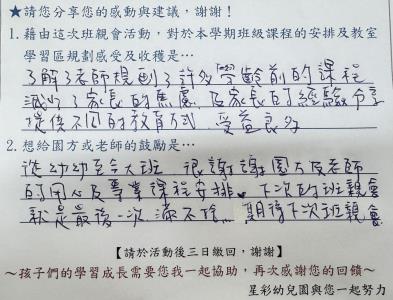 ★請您分享您的感動與建議，謝謝！
1. 藉由這次班親會活動，對於本學期班級課程的安排及教室
學習區規劃感受及收穫是…
了解了老師規劃了許多學齡前的課程
減少了家長的焦慮，及家長的經驗分享
提供不同的教育方式，受益良多
2. 想給園方或老師的鼓勵是…
從幼幼至今大班，很謝謝園方及老師
的用心及專業課程安排。下次的班親會
就是最後一次 滿不捨…期待下次班親會
【請於活動後三日繳回，謝謝】
～孩子們的學習成長需要您我一起協助，再次感謝您的回饋～
星彩幼兒園與您一起努力